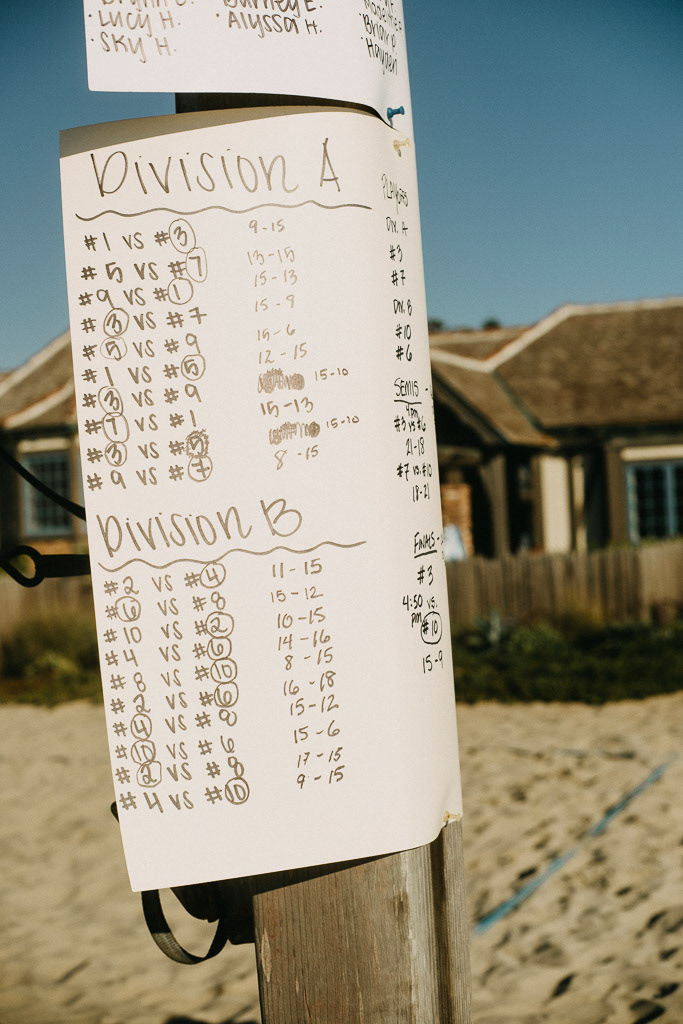 Burney E.
·Lucy H. ·Alyssa H.
·Sky H.
Brian P.
Hayden
Division A
#1 vs #3 9-15
#5 vs #7 13-15
#9 vs #1 15-13
#3 vs #7 15-9
#5 vs #9 15-6
#1 vs #5 12-15
#3 vs #9 15-10
#7 vs #1 15-13
#3 vs #5 15-10
#9 vs #7 8-15
Division B
#2 vs #4 11-15
#6 vs #8 15-12
#10 vs #2 10-15
#4 vs #6 14-16
#8 vs #10 8-15
#2 vs #6 16-18
#4 vs #8 15-12
#10 vs #6 15-6
#2 vs #8 17-15
#4 vs #10 9-15
PLAYOFFS
DIV. A
#3
#7
DIV. B
#10
#6
SEMIS -
4pm
#3 vs #6
21-18
#7 vs. #10
18-21
FINALS -
#3
4:50 pm vs.
#10
15-9